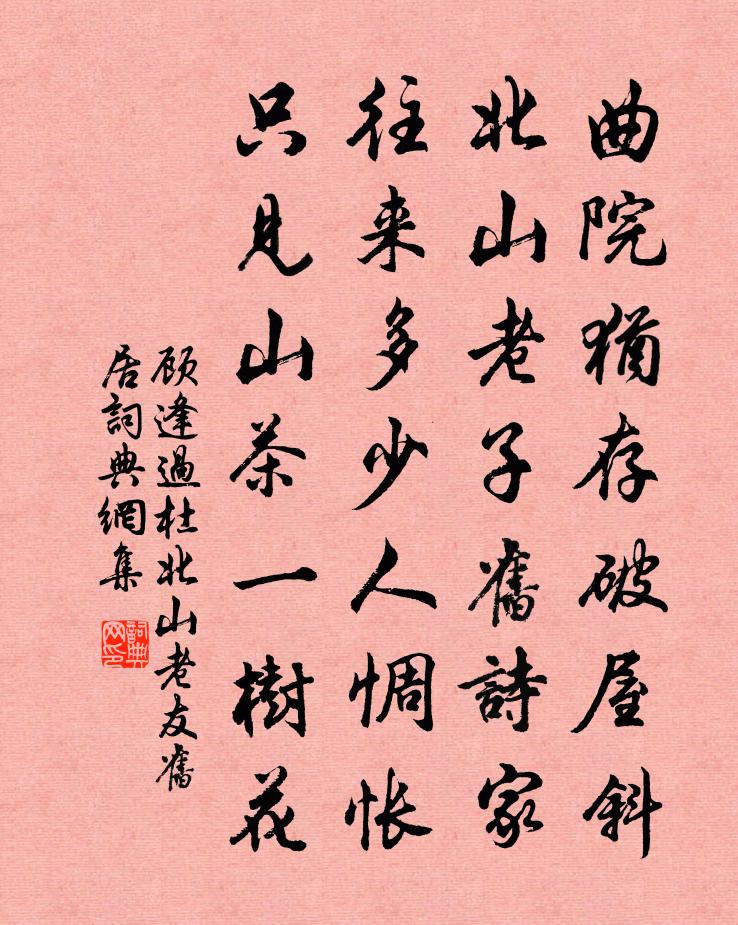 曲院犹存破屋斜
北山老子舊詩家
往来多少人惆怅
只見山茶一樹花
顾逢過杜北山老友舊
居詞典網集
詞典
网印